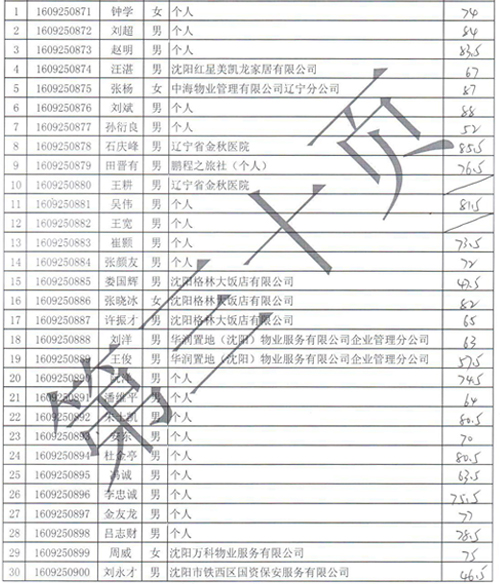 1 1609250871 钟学 女 个人 74
2 1609250872 刘超 男 个人 84
3 1609250873 赵明 男 个人 83.5
4 1609250874 汪湛 男 沈阳红星美凯龙家居有限公司 67
5 1609250875 张杨 女 中海物业管理有限公司辽宁分公司 87
6 1609250876 刘斌 男 个人 88
7 1609250877 孙衍良 男 个人 52
8 1609250878 石庆峰 男 辽宁省金秋医院 85.5
9 1609250879 田晋有 男 鹏程之旅社（个人） 76.5
10 1609250880 王耕 男 辽宁省金秋医院
11 1609250881 吴伟 男 个人 81.5
12 1609250882 王宽 男 个人
13 1609250883 崔颢 男 个人 73.5
14 1609250884 张颜友 男 个人 72
15 1609250885 娄国辉 男 沈阳格林大饭店有限公司 47.5
16 1609250886 张晓冰 女 沈阳格林大饭店有限公司 82
17 1609250887 许振才 男 沈阳格林大饭店有限公司 65
18 1609250888 刘洋 男 华润置地（沈阳）物业服务有限公司企业管理分公司 63
19 1609250889 王俊 男 华润置地（沈阳）物业服务有限公司企业管理分公司 57.5
20 1609250890 男 个人 74.5
21 1609250891 潘维平 男 个人 64
22 1609250892 男 个人 80.5
23 1609250893 安东 男 个人 70
24 1609250894 杜金亭 男 个人 80.5
25 1609250895 冯诚 男 个人 63.5
26 1609250896 李忠诚 男 个人 75.5
27 1609250897 金友龙 男 个人 77
28 1609250898 吕志财 男 个人 78.5
29 1609250899 周威 女 沈阳万科物业服务有限公司 75
30 1609250900 刘永才 男 沈阳市铁西区国资保安服务有限公司 46.5
第三十页